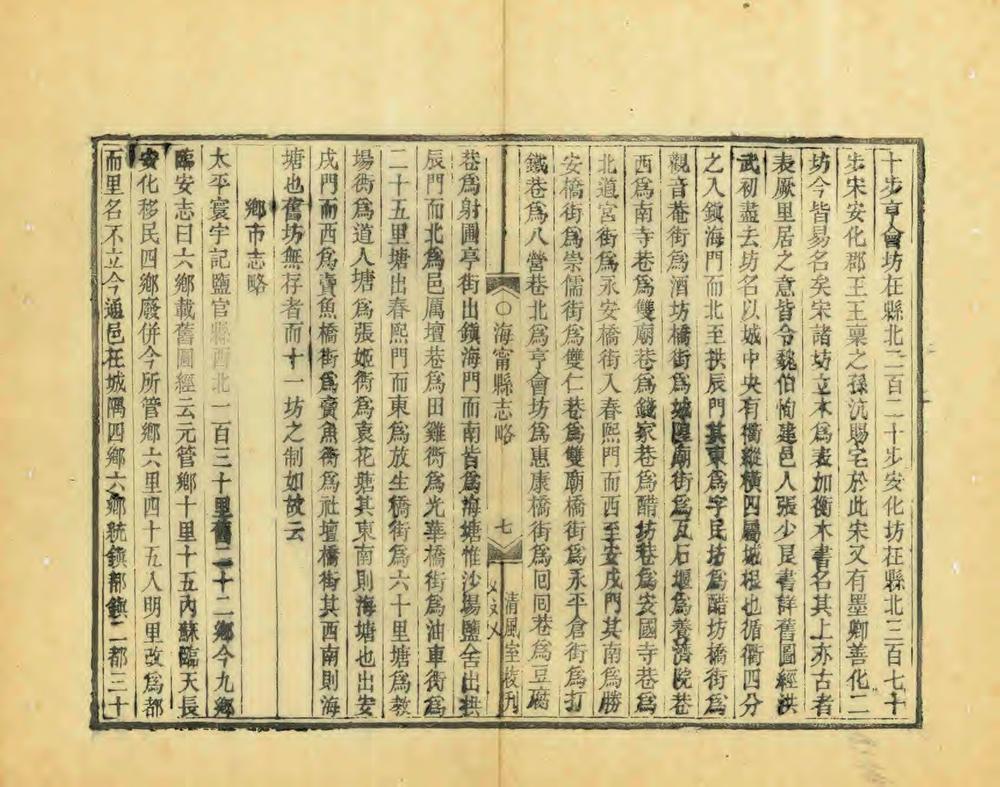 十步亨會坊在縣北二百二十步安化坊在縣北三百七十
步宋安化郡王王稟之孫沆賜宅於此宋又有墨卿善化二
坊今皆易名矣宋諸坊立木爲表加衡木書名其上亦古者
表厥里居之意皆令魏伯恂建邑人張少良書詳舊圖經洪
武初盡去坊名以城中央有衢縱橫四屬城根也循衢四分
之入鎭海門而北至拱辰門其東爲字民坊爲酷坊橋街爲
觀音菴街爲酒坊橋街爲城隍廟街爲瓦石堰爲養濟院巷
西爲南寺巷爲雙廟巷爲錢家巷爲醋坊巷爲安國寺巷爲
北道宮街爲永安橋街入春熙門而西至安戌門其南爲勝
安橋街爲崇儒街爲雙仁巷爲雙廟橋街爲永平倉街爲打
鐵巷爲八營巷北爲亨會坊爲惠康橋街爲囘囘巷爲豆腐
海甯縣志略
七
清風室校刋
巷爲射圃亭街出鎭海門而南皆爲海塘惟沙場鹽舍出拱
辰門而北爲邑厲壇巷爲田雞衖爲光華橋街爲油車衖爲
二十五里塘出春熙門而東爲放生橋街爲六十里塘爲敎
場衖爲道人塘爲張姬衖爲袁花塘其東南則海塘也出安
戌門而西爲賣魚橋街爲賣魚衖爲社壇橋街其西南則海
塘也舊坊無存者而十一坊之制如故云
鄉市志略
太平寰宇記鹽官縣西北一百三十里舊二十二鄉今九鄉
臨安志曰六鄉載舊圖經云元管鄉十里十五內蘇臨天長
安化移民四鄉廢併今所管鄉六里四十五入明里改爲都
而里名不立今通邑在城隅四鄉六鄉統鎭都鎭二都三十